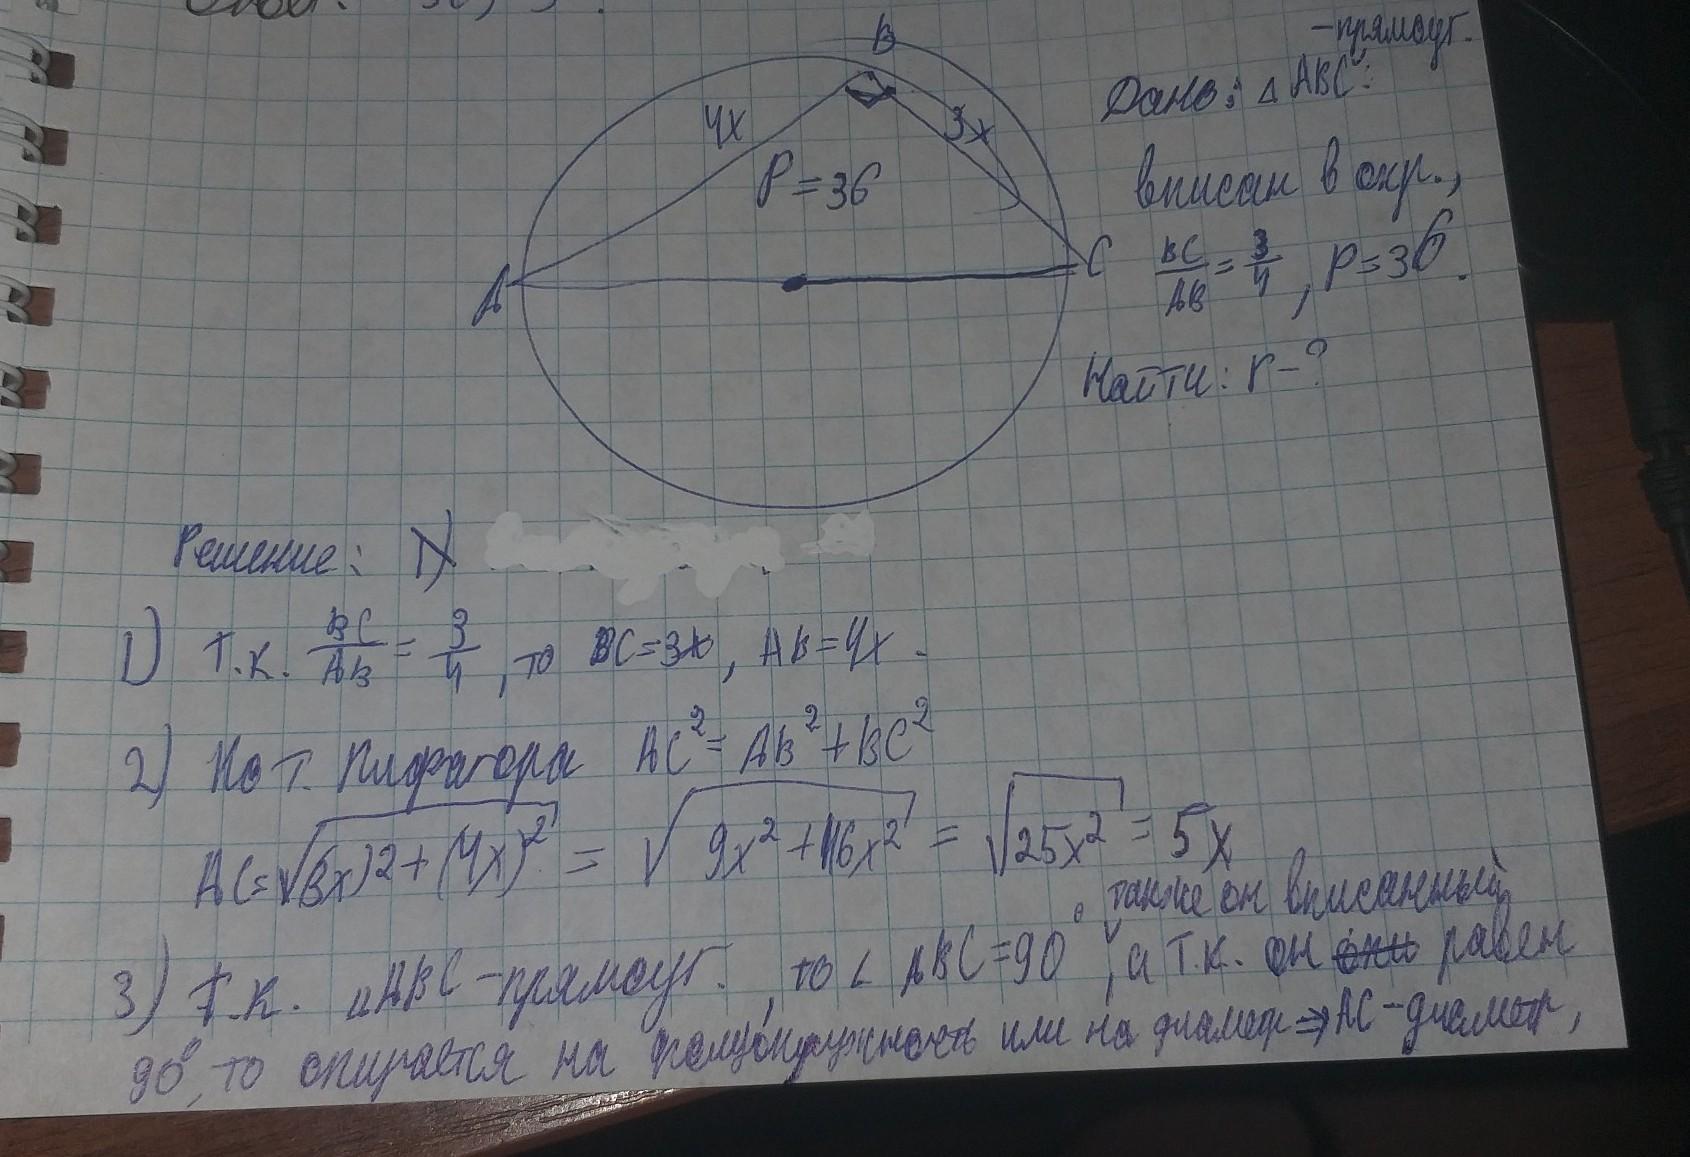 Ответ:
B
4x
3x
P=36
A
C
-прямоуг.
Дано: △ABC:
вписан в окр.,
BC/AB = 3/4, P=36.
Найти: r-?
Решение:
1) Т.к. BC/AB = 3/4, то BC=3x, AB=4x.
2) По т. Пифагора AC²=AB²+BC²
AC=√(3x)2+(4x)² = √9x²+16x² = √25x² = 5x
также он вписанный
3) Т.к. △ABC-прямоуг., то ∠ABC=90°, а т.к. он они равен
90°, то опирается на полуокружность или на диаметр ⇒ AC-диаметр,